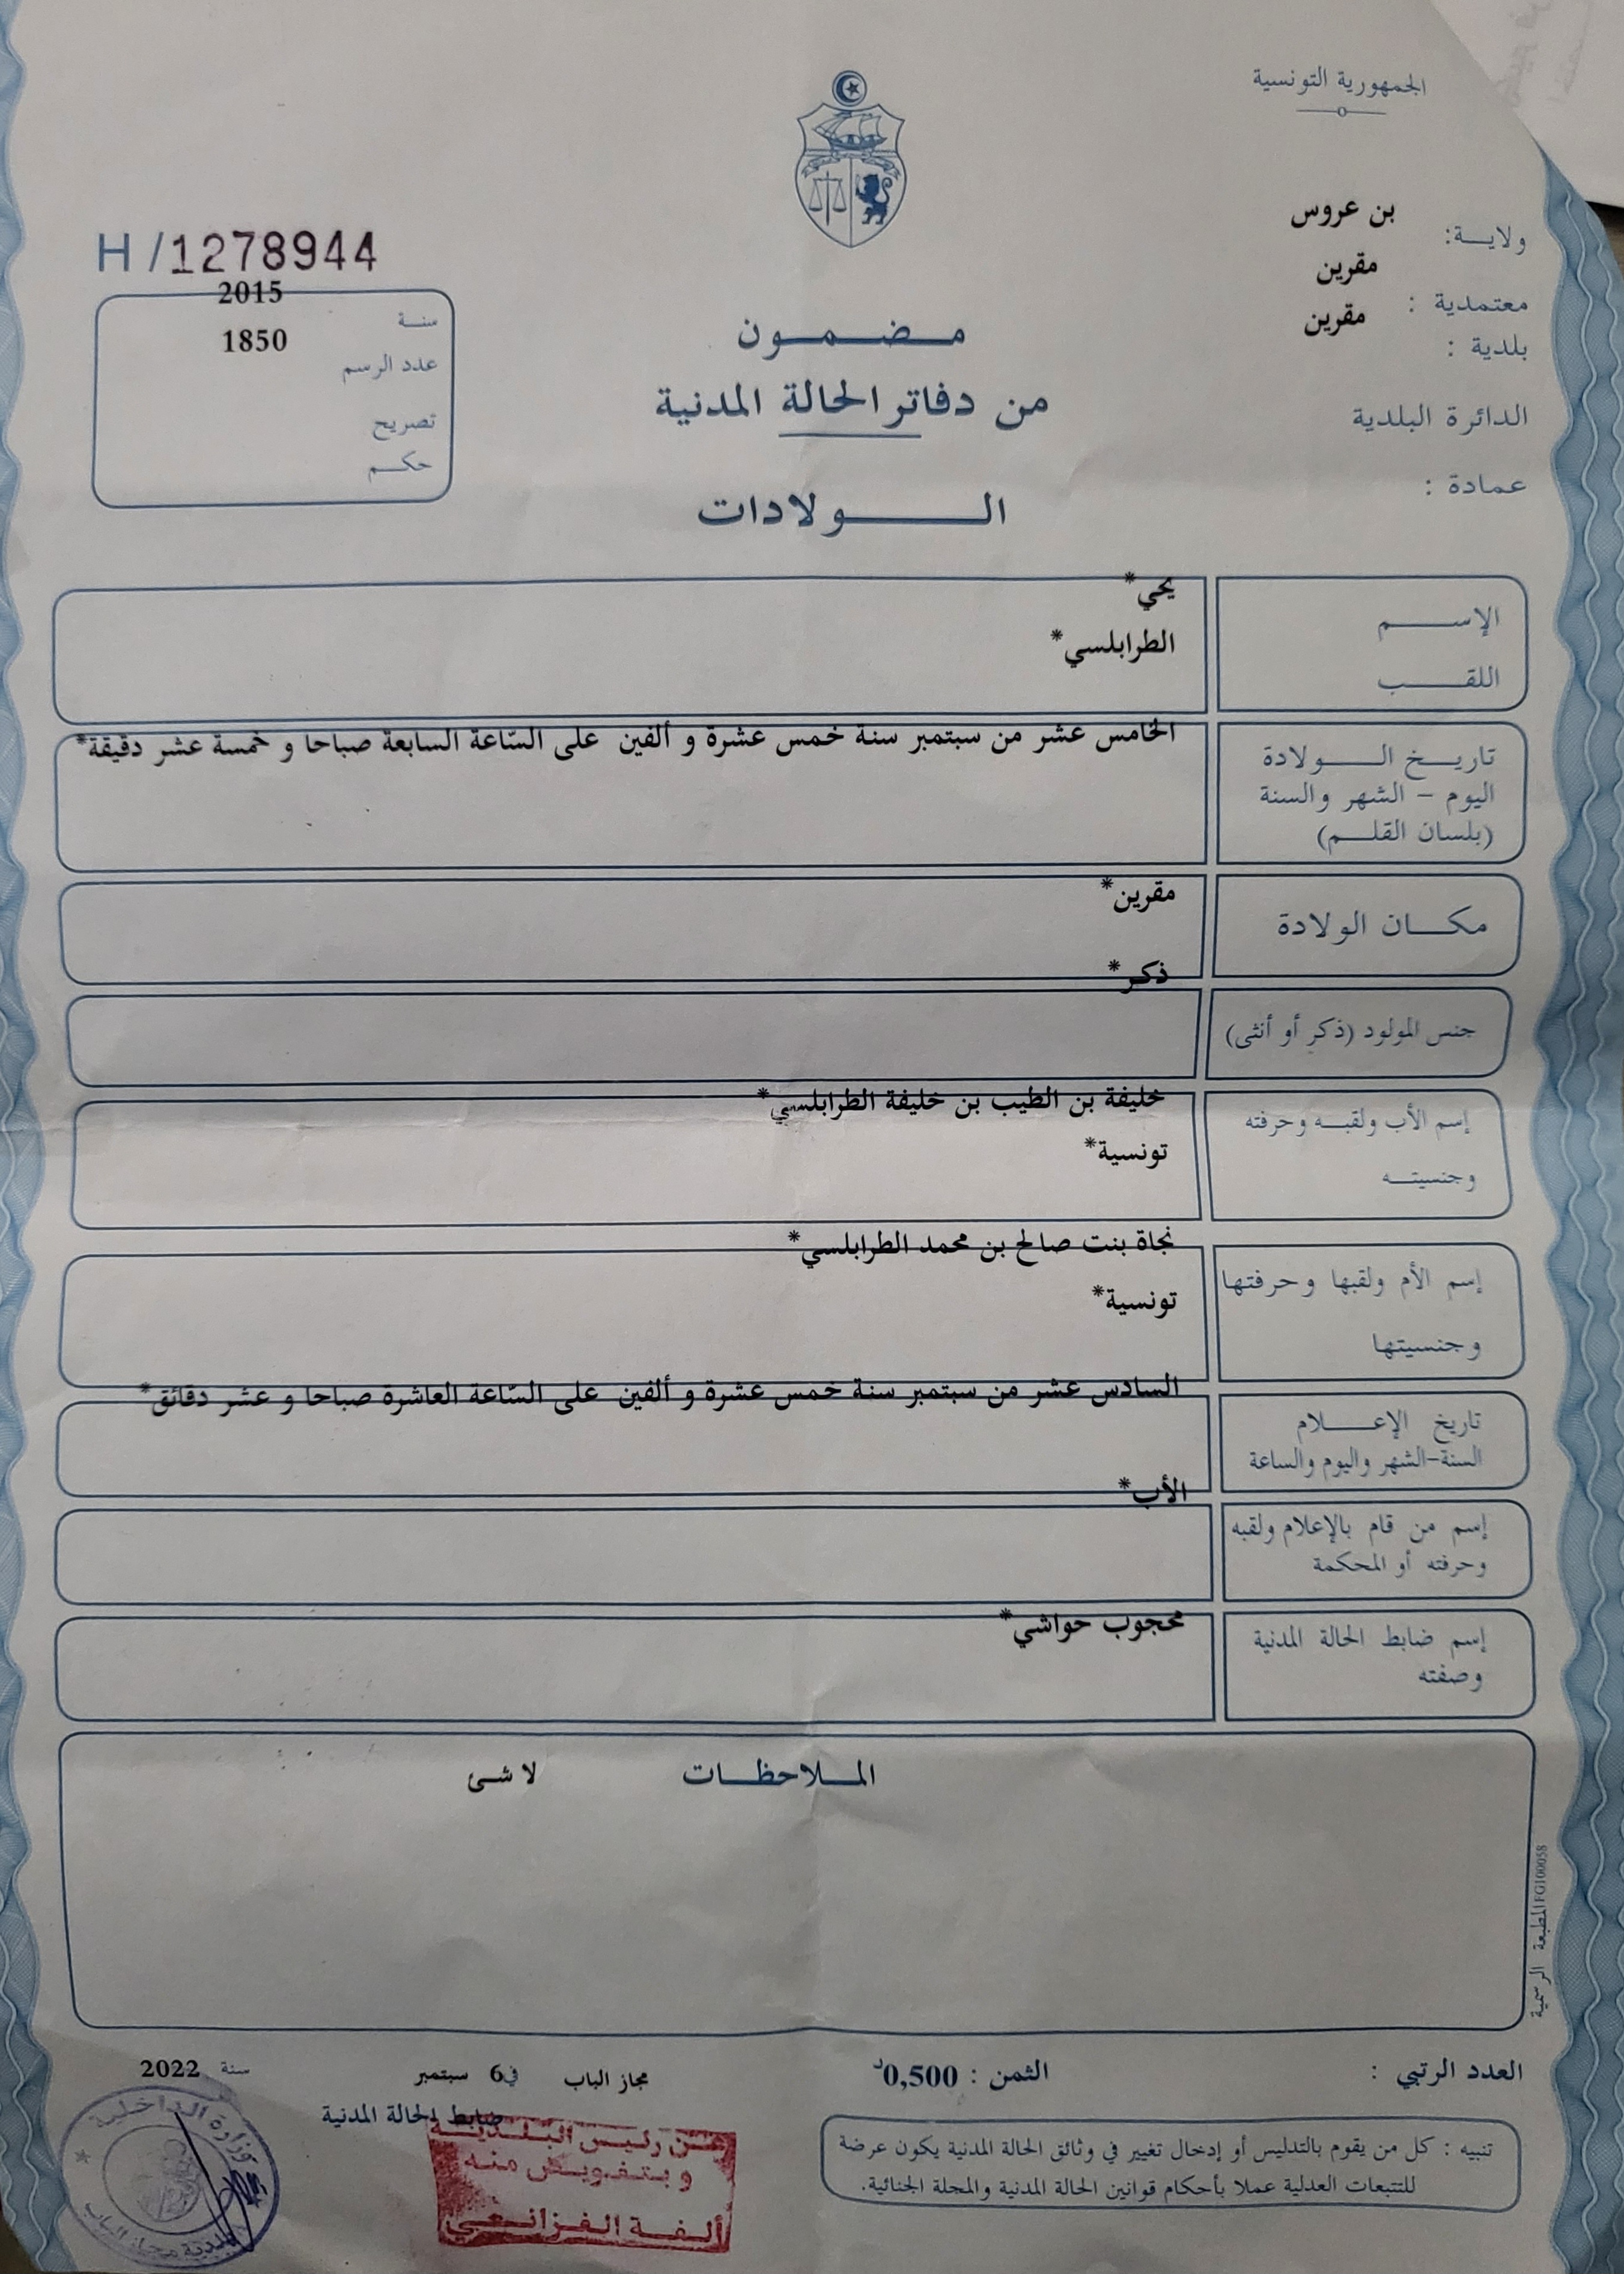 الجمهورية التونسية
ولاية: بن عروس
معتمدية : مقرين
بلدية : مقرين
الدائرة البلدية
عمادة :
مضمون
من دفاتر الحالة المدنية
الولادات
H/1278944
سنة 2015
عدد الرسم 1850
تصريح
حكم
الإسم يحي*
اللقب الطرابلسي*
تاريخ الولادة
اليوم - الشهر والسنة
(بلسان القلم)
الخامس عشر من سبتمبر سنة خمس عشرة و ألفين على السّاعة السابعة صباحا و خمسة عشر دقيقة*
مكان الولادة
مقرين*
جنس المولود (ذكر أو أنثى)
ذكر*
إسم الأب ولقبه وحرفته
وجنسيته
خليفة بن الطيب بن خليفة الطرابلسي*
تونسية*
إسم الأم ولقبها وحرفتها
وجنسيتها
نجاة بنت صالح بن محمد الطرابلسي*
تونسية*
تاريخ الإعلام
السنة-الشهر واليوم والساعة
السادس عشر من سبتمبر سنة خمس عشرة و ألفين على السّاعة العاشرة صباحا و عشر دقائق*
إسم من قام بالإعلام ولقبه
وحرفته أو المحكمة
الأب*
إسم ضابط الحالة المدنية
وصفته
محجوب حواشي*
الملاحظات لا شئ
المطبعة الرسمية FG100058
العدد الرتبي :
الثمن : 0,500د
مجاز الباب في 6 سبتمبر سنة 2022
ضابط الحالة المدنية
عن رئيس البلدية
و بتفويض منه
ألفة الفزانعي
وزارة الداخلية
بلدية مجاز الباب
تنبيه : كل من يقوم بالتدليس أو إدخال تغيير في وثائق الحالة المدنية يكون عرضة
للتتبعات العدلية عملا بأحكام قوانين الحالة المدنية والمجلة الجنائية.